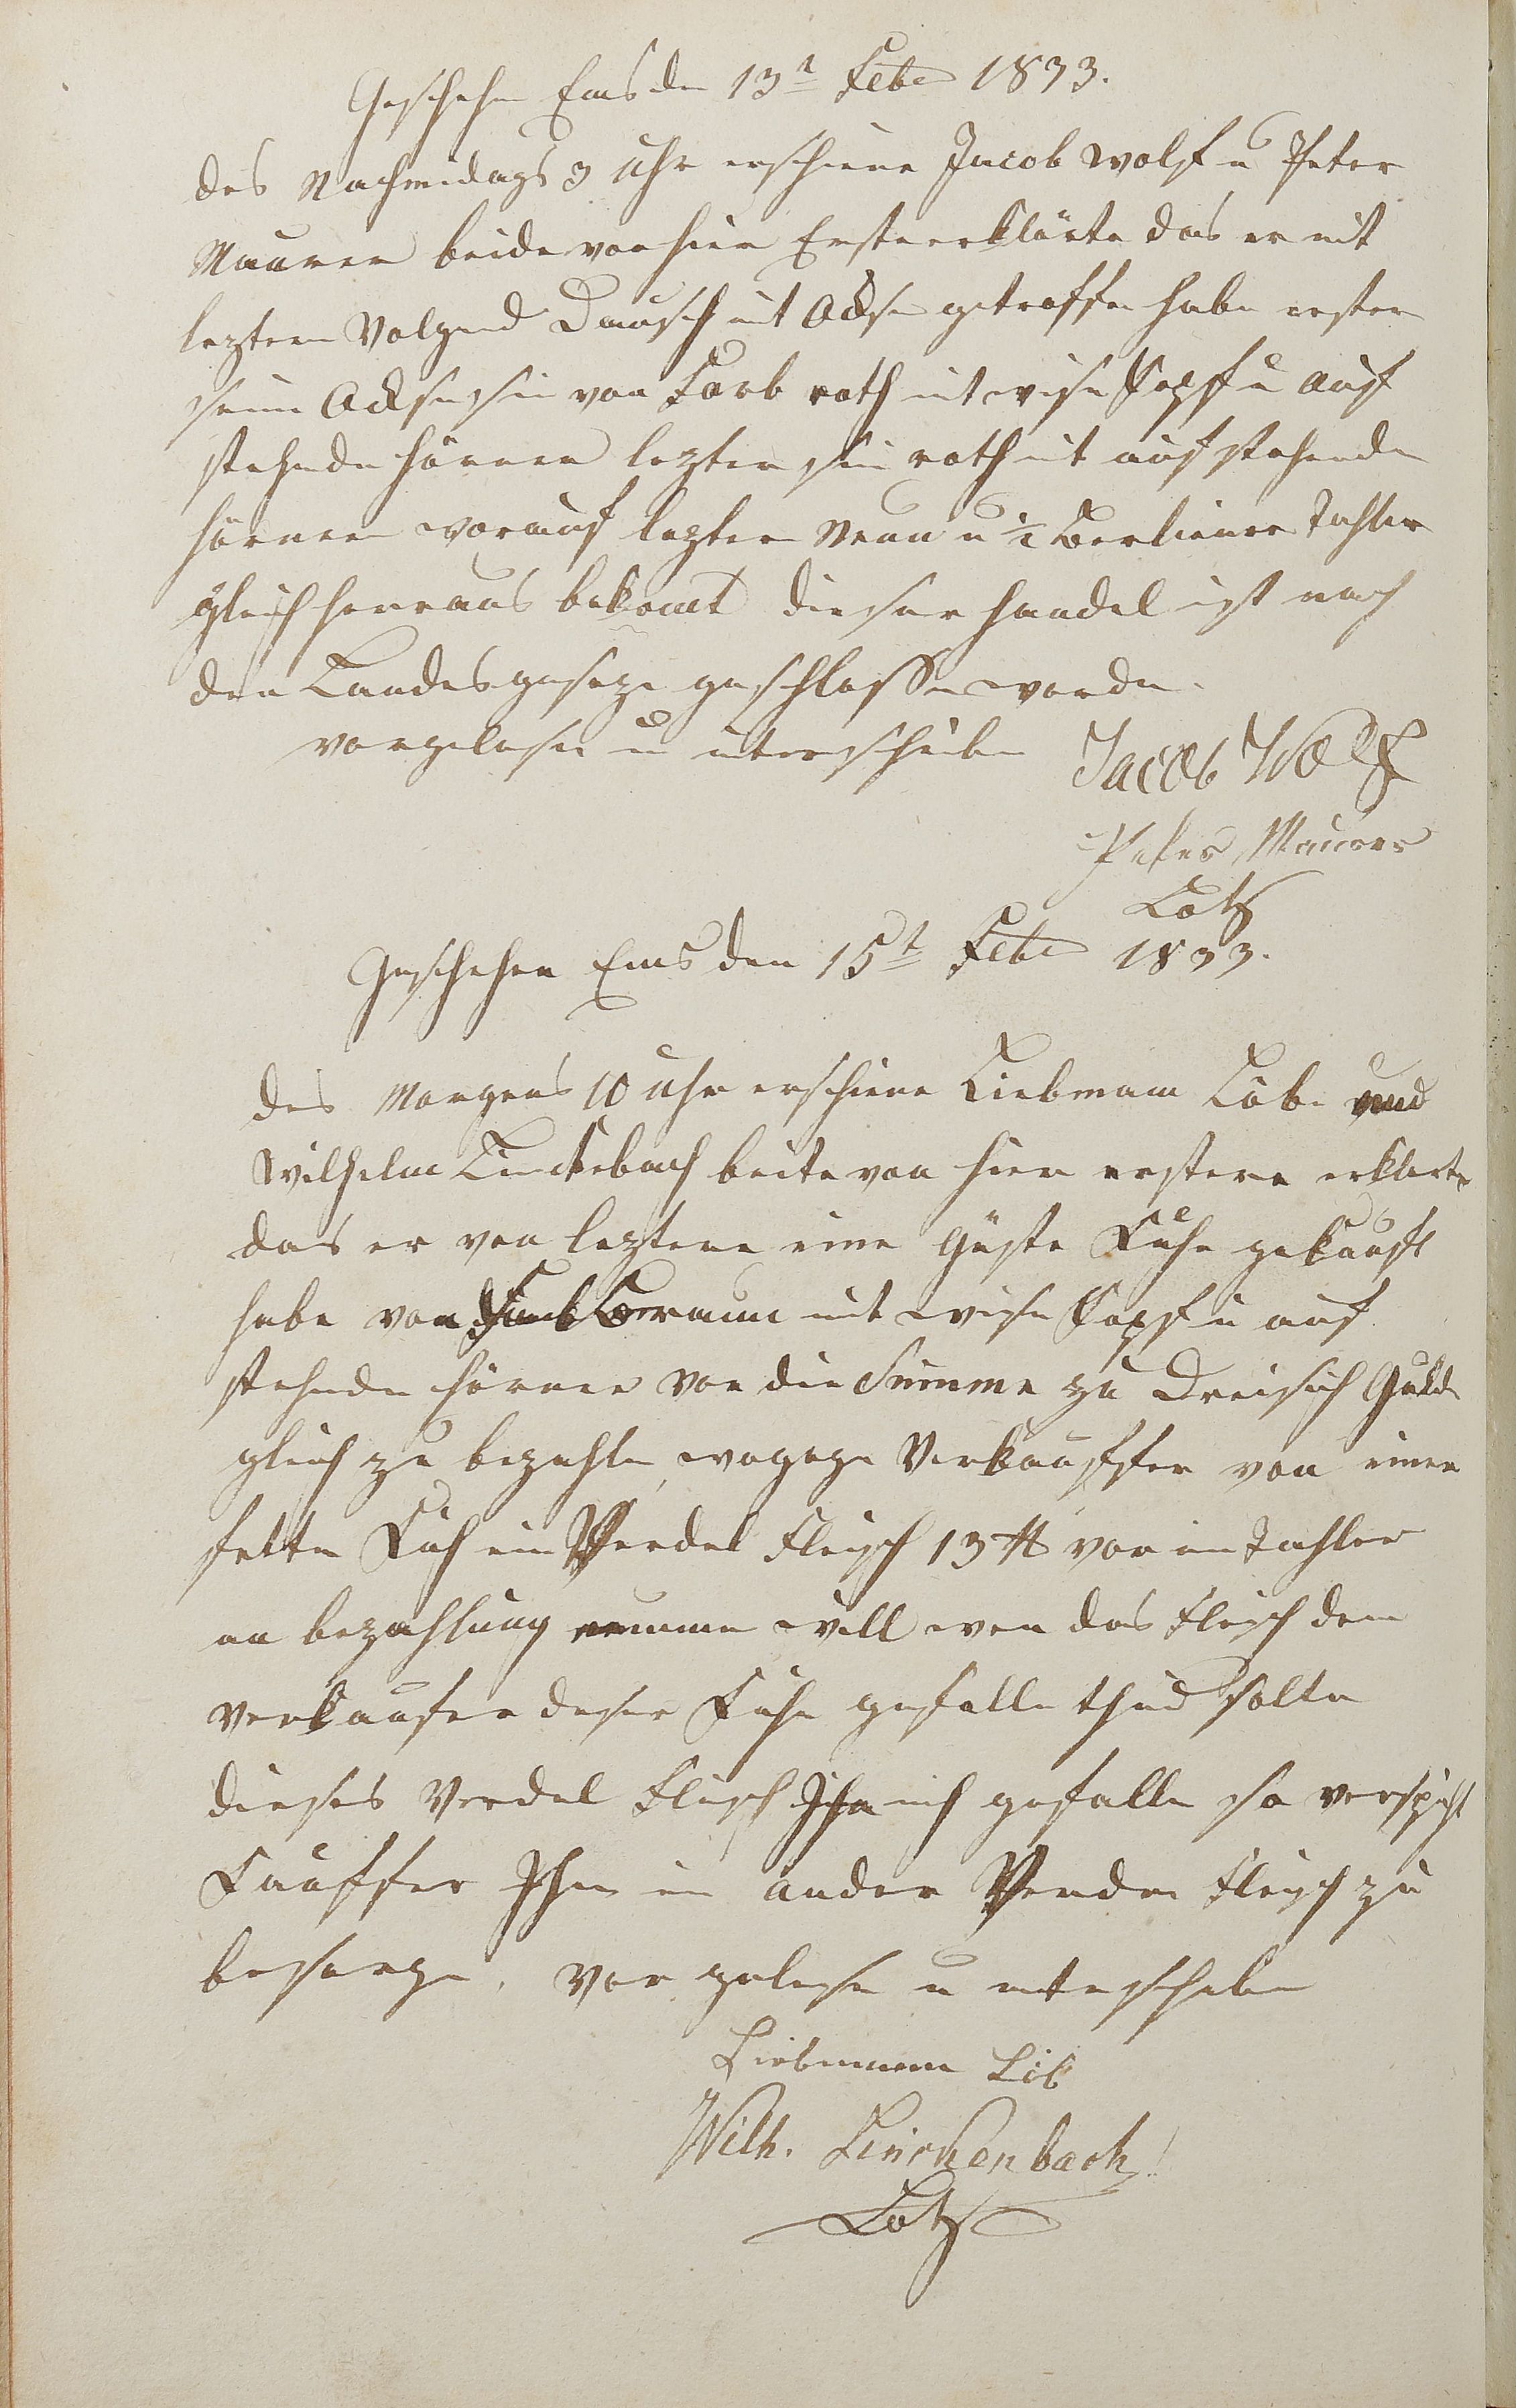 Geschehen Ems den 13t Febr 1833.
des Nachmidags 3 Uhr erschiene Jacob Wolf u Peter
Maurer beide von hier Erste erklärte das er mit
leztern Volgend Dausch mit Ockse getroffen habe erster
seine Ockse sei von Farb roth mit weise Kopf u auf
stehende hörner lezter sei roth mit auf stehende
hörner worauf lezter Neun u ½ Berliener Tahler
gleich herraus bekomt dieser handel ist nach
den Landesgeseze geschlossen worden.
vorgelesen u unterschrieben Jacob Wolf
Peter Maurer
Lotz
Geschehen Ems den 15t Febr 1833.
des Morgens 10 Uhr erschiene Liebmann Löb und
Wilhelm Linckebach beite von hier erstere erklerte
das er von leztere eine Güste Kuhe gekauft
habe von Farb Braun mit weise Kopf u auf
stehende hörner vor die Summe zu Dreisich Guld
gleich zu bezahlen, wogege Verkauffer von einer
fette Kuh ein Verdel Fleisch 13 ℔ vor ein Tahler
an bezahlung nemme will wen das Fleisch dem
Verkaufer deser Kuhe gefalle thud solte
dieses Verdel Fleisch Ihn nich gefalle so verspricht
Kauffer Ihm ein ander Verdel Fleisch zu
besorge. Vor gelese u unterschrieben
Liebmann Löb
Wilh. Linckenbach
Lotz